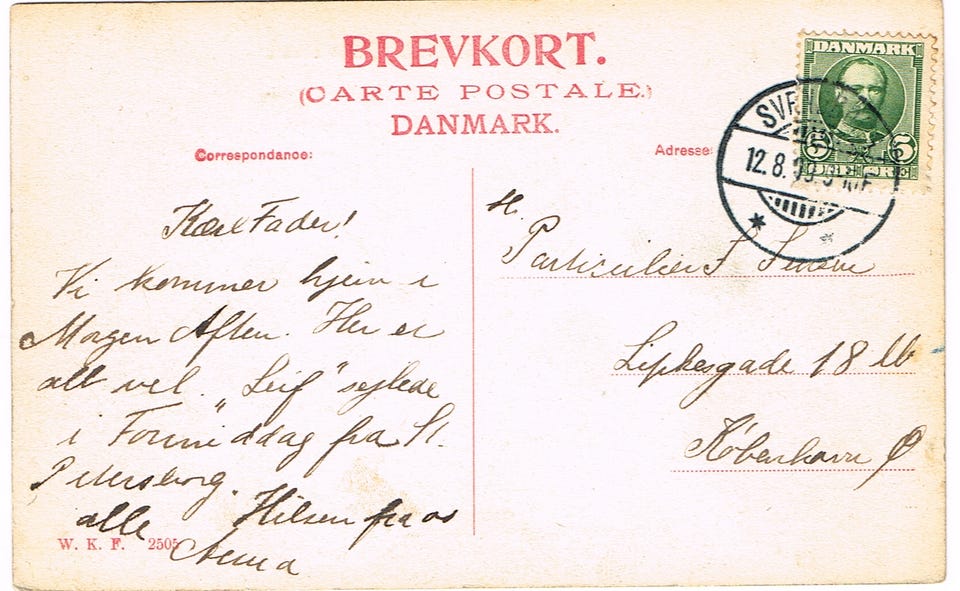 BREVKORT.
(CARTE POSTALE.)
DANMARK.
Correspondance:
Adresse:
DANMARK
5 5
ØRE
12.8.09
Kære Fader!
Vi kommer hjem i
Morgen Aften. Her er
alt vel. "Leif" sejlede
i Formiddag fra St.
Petersborg.
alle Hilsen fra os
W. K. F. 2505
Hr.
Particulier
Lipkesgade 18
København Ø